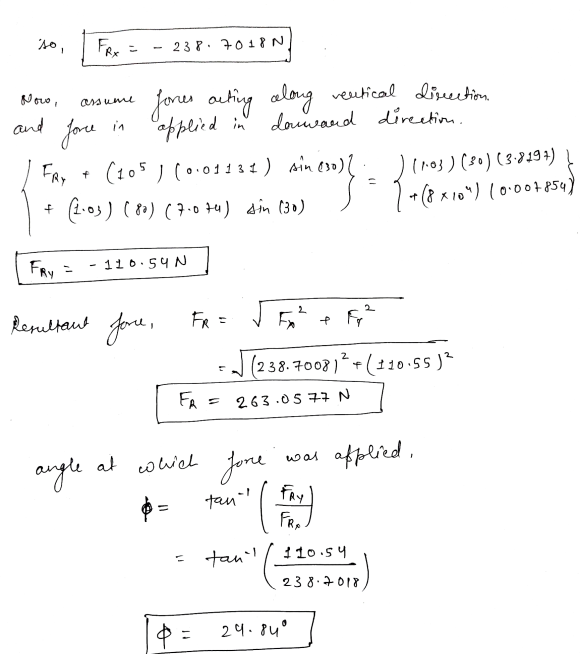 so, F_Rx = - 238.7018 N
Now, assume forces acting along vertical direction
and force is applied in downward direction.
{ F_Ry + (10^5) (0.01131) sin (30) } = { (1.03) (30) (3.8197)
+ (1.03) (80) (7.074) sin (30) + (8 × 10^4) (0.007854) }
F_Ry = - 110.54 N
Resultant force, F_R = √ F_x^2 + F_y^2
= √ (238.7008)^2 + (110.55)^2
F_R = 263.0577 N
angle at which force was applied,
φ = tan^-1 ( F_Ry / F_Rx )
= tan^-1 ( 110.54 / 238.7018 )
φ = 24.84°